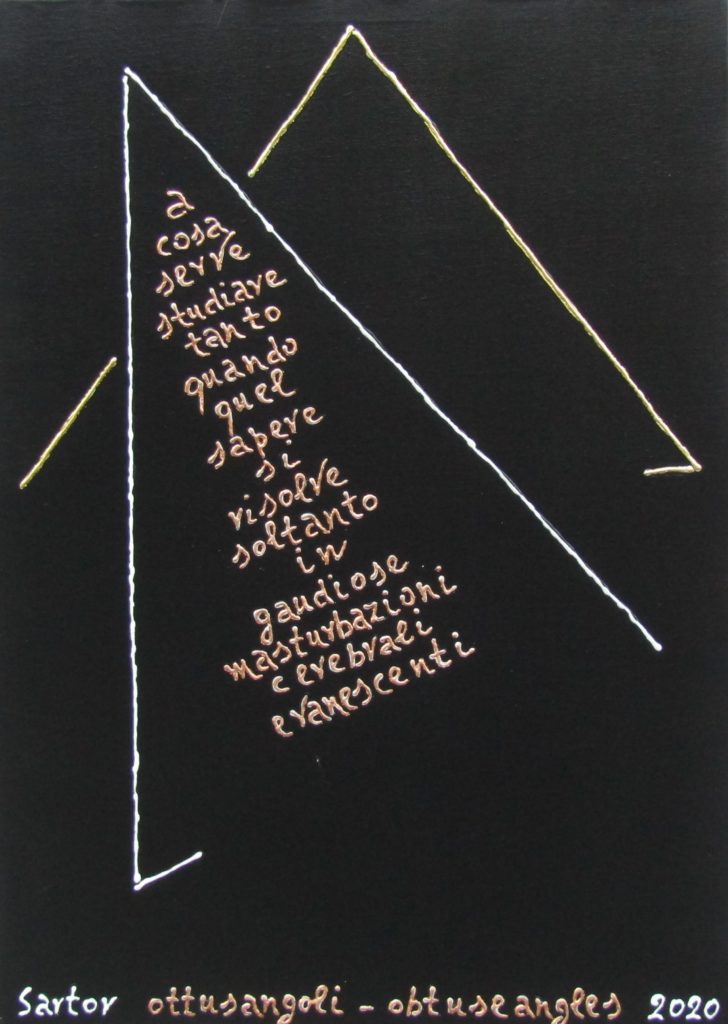 a
cosa
serve
studiare
tanto
quando
quel
sapere
si
risolve
soltanto
in
gaudiose
masturbazioni
cerebrali
evanescenti
Sartor ottusangoli - obtuseangles 2020